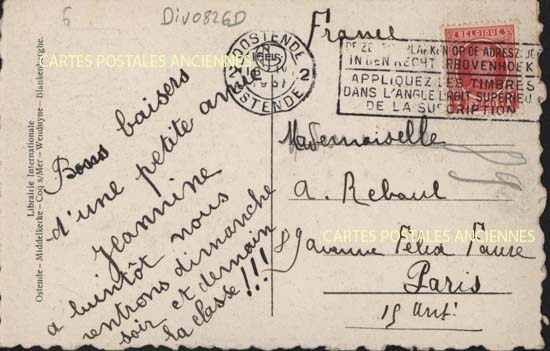 6
Div0826D
France
OOSTENDE
OSTENDE
2
IN DEN RECHTERBOVENHOEK
APPLIQUEZ LES TIMBRES
DANS L'ANGLE DROIT SUPÉRIEUR
DE LA SUSCRIPTION
BELGIQUE
Bons baisers
d'une petite amie
Jeannine
a bientôt nous
rentrons dimanche
soir et demain
la classe!!!
Mademoiselle
A. Reboul
89 avenue Félix Faure
Paris
15 arr!
Librairie Internationale
Ostende – Middelkerke – Coq s/Mer – Wenduyne – Blankenberghe.
CARTES POSTALES ANCIENNES
CARTES POSTALES ANCIENNES
CARTES POSTALES ANCIENNES